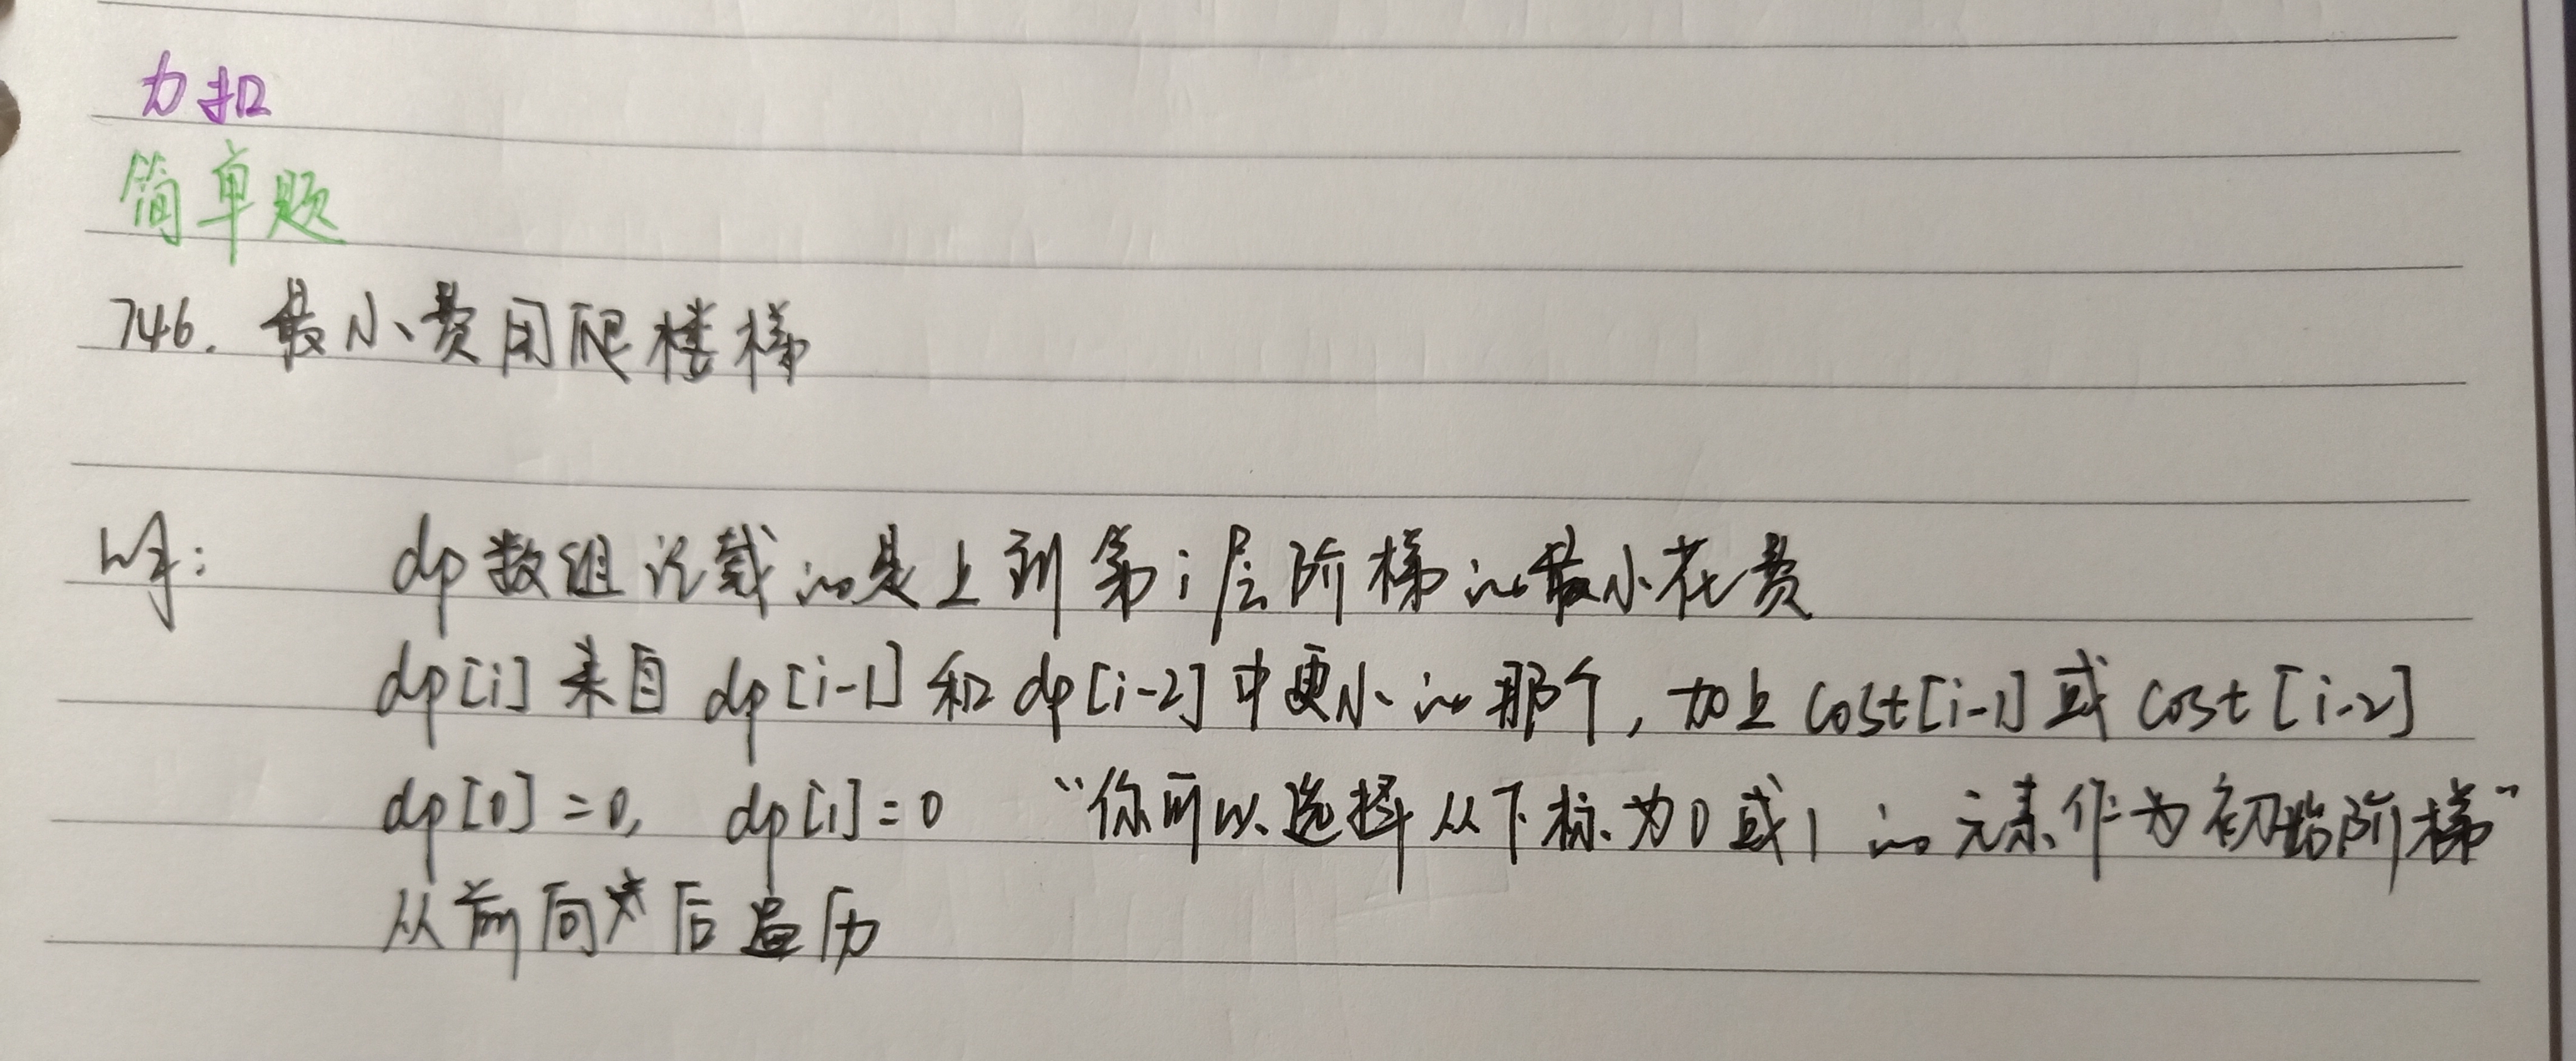 力扣
简单题
746. 最小费用爬楼梯
dp数组记载的是上到第i层阶梯的最小花费
dp[i]来自dp[i-1]和dp[i-2]中更小的那个，加上cost[i-1]或cost[i-2]
dp[0]=0, dp[1]=0 “你可以选择从下标为0或1的元素作为初始阶梯”
从前向后遍历